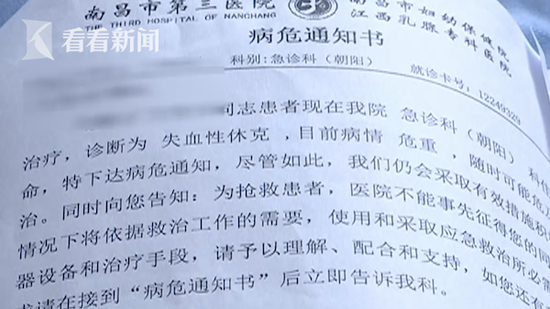 南昌市第三医院
南昌市妇幼保健院
THE THIRD HOSPITAL OF NANCHANG
江西乳腺专科医院
看看新闻
病危通知书
科别:急诊科(朝阳)
就诊卡号:12249320
同志患者现在我院 急诊科(朝阳) 科住
治疗,诊断为 失血性休克 ,目前病情 危重 ,随时可能危
命,特下达病危通知,尽管如此,我们仍会采取有效措施积
治。同时向您告知:为抢救患者,医院不能事先征得您的同
情况下将依据救治工作的需要,使用和采取应急救治所必需
器设备和治疗手段,请予以理解、配合和支持,如您还有
求请在接到“病危通知书”后立即告诉我科。